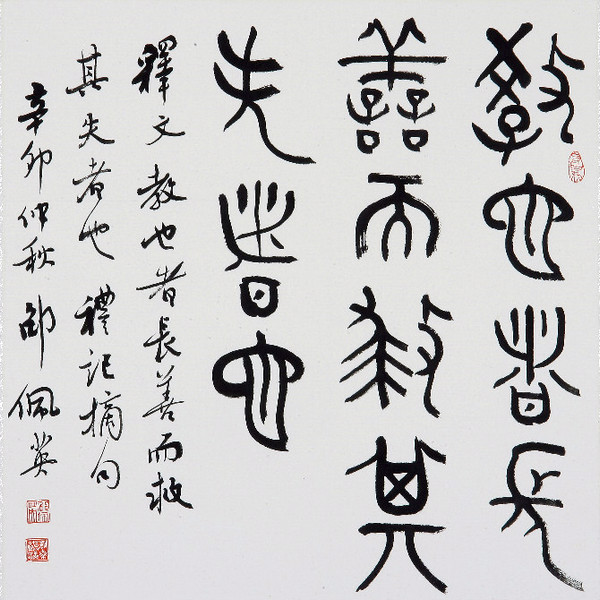 教也者長
善而救其
失者也
釋文教也者長善而救
其失者也禮記摘句
辛卯仲秋邵佩英